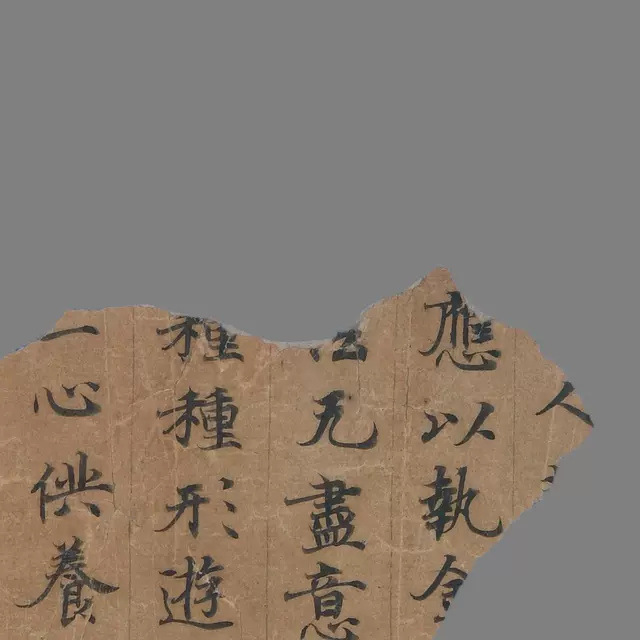 人
應以執金
法无盡意
種種形遊
一心供養